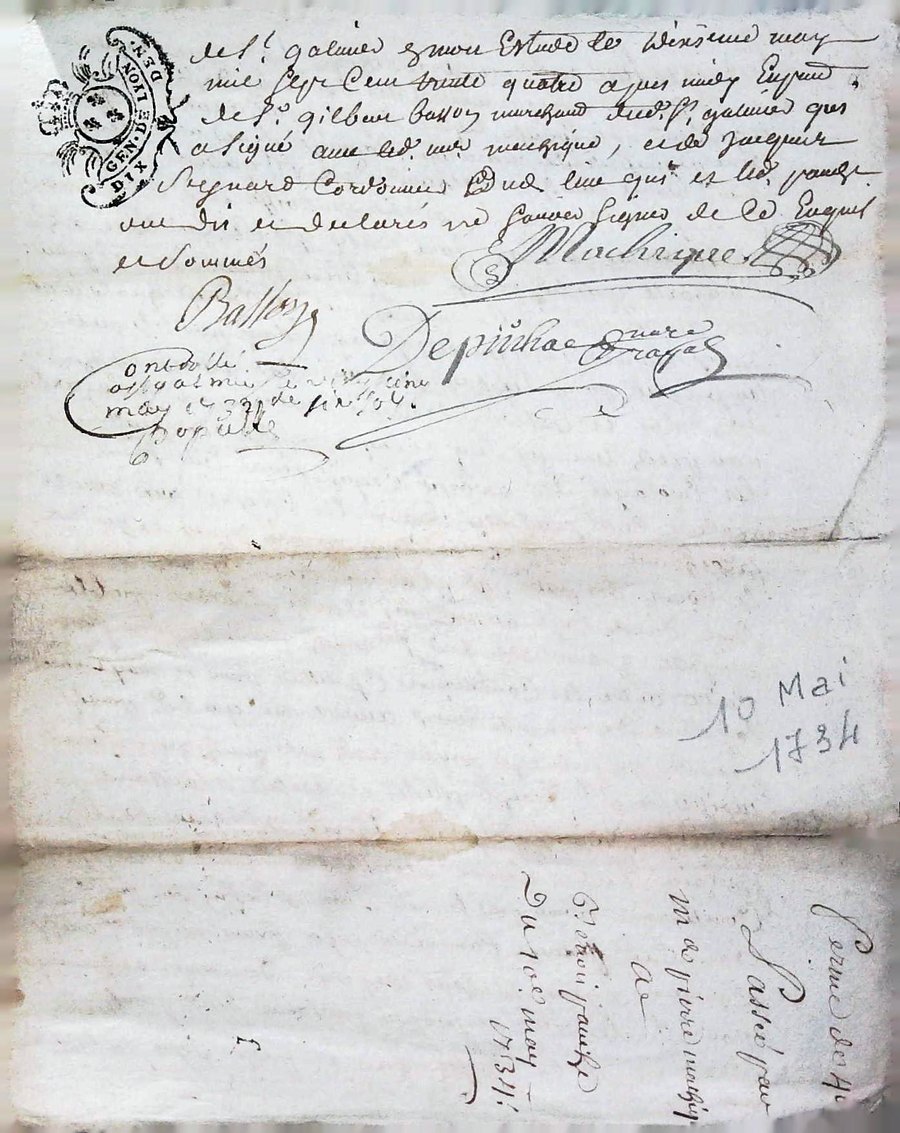 GEN. DE LYON
DIX DEN.
de St galmier en mon Estude le dixieme may
mil sept cent trente quatre apres midy En pnce
de Sr gilbert basson marchand dud. St galmier qui
a signé avec led. mr machique, et de Jacques
Cordonnier dud. lieu qui et led.
ont dit et declarés ne sçavoir signer de ce Enquis
et sommés
Machique
Basson
Depinhac nore Royal
Controllé
a St galmier le vingt cinq
may 1734
10 Mai
1734
Ferme de
Passé par
mr de pierre machiq
A
Du 10e may
1734.